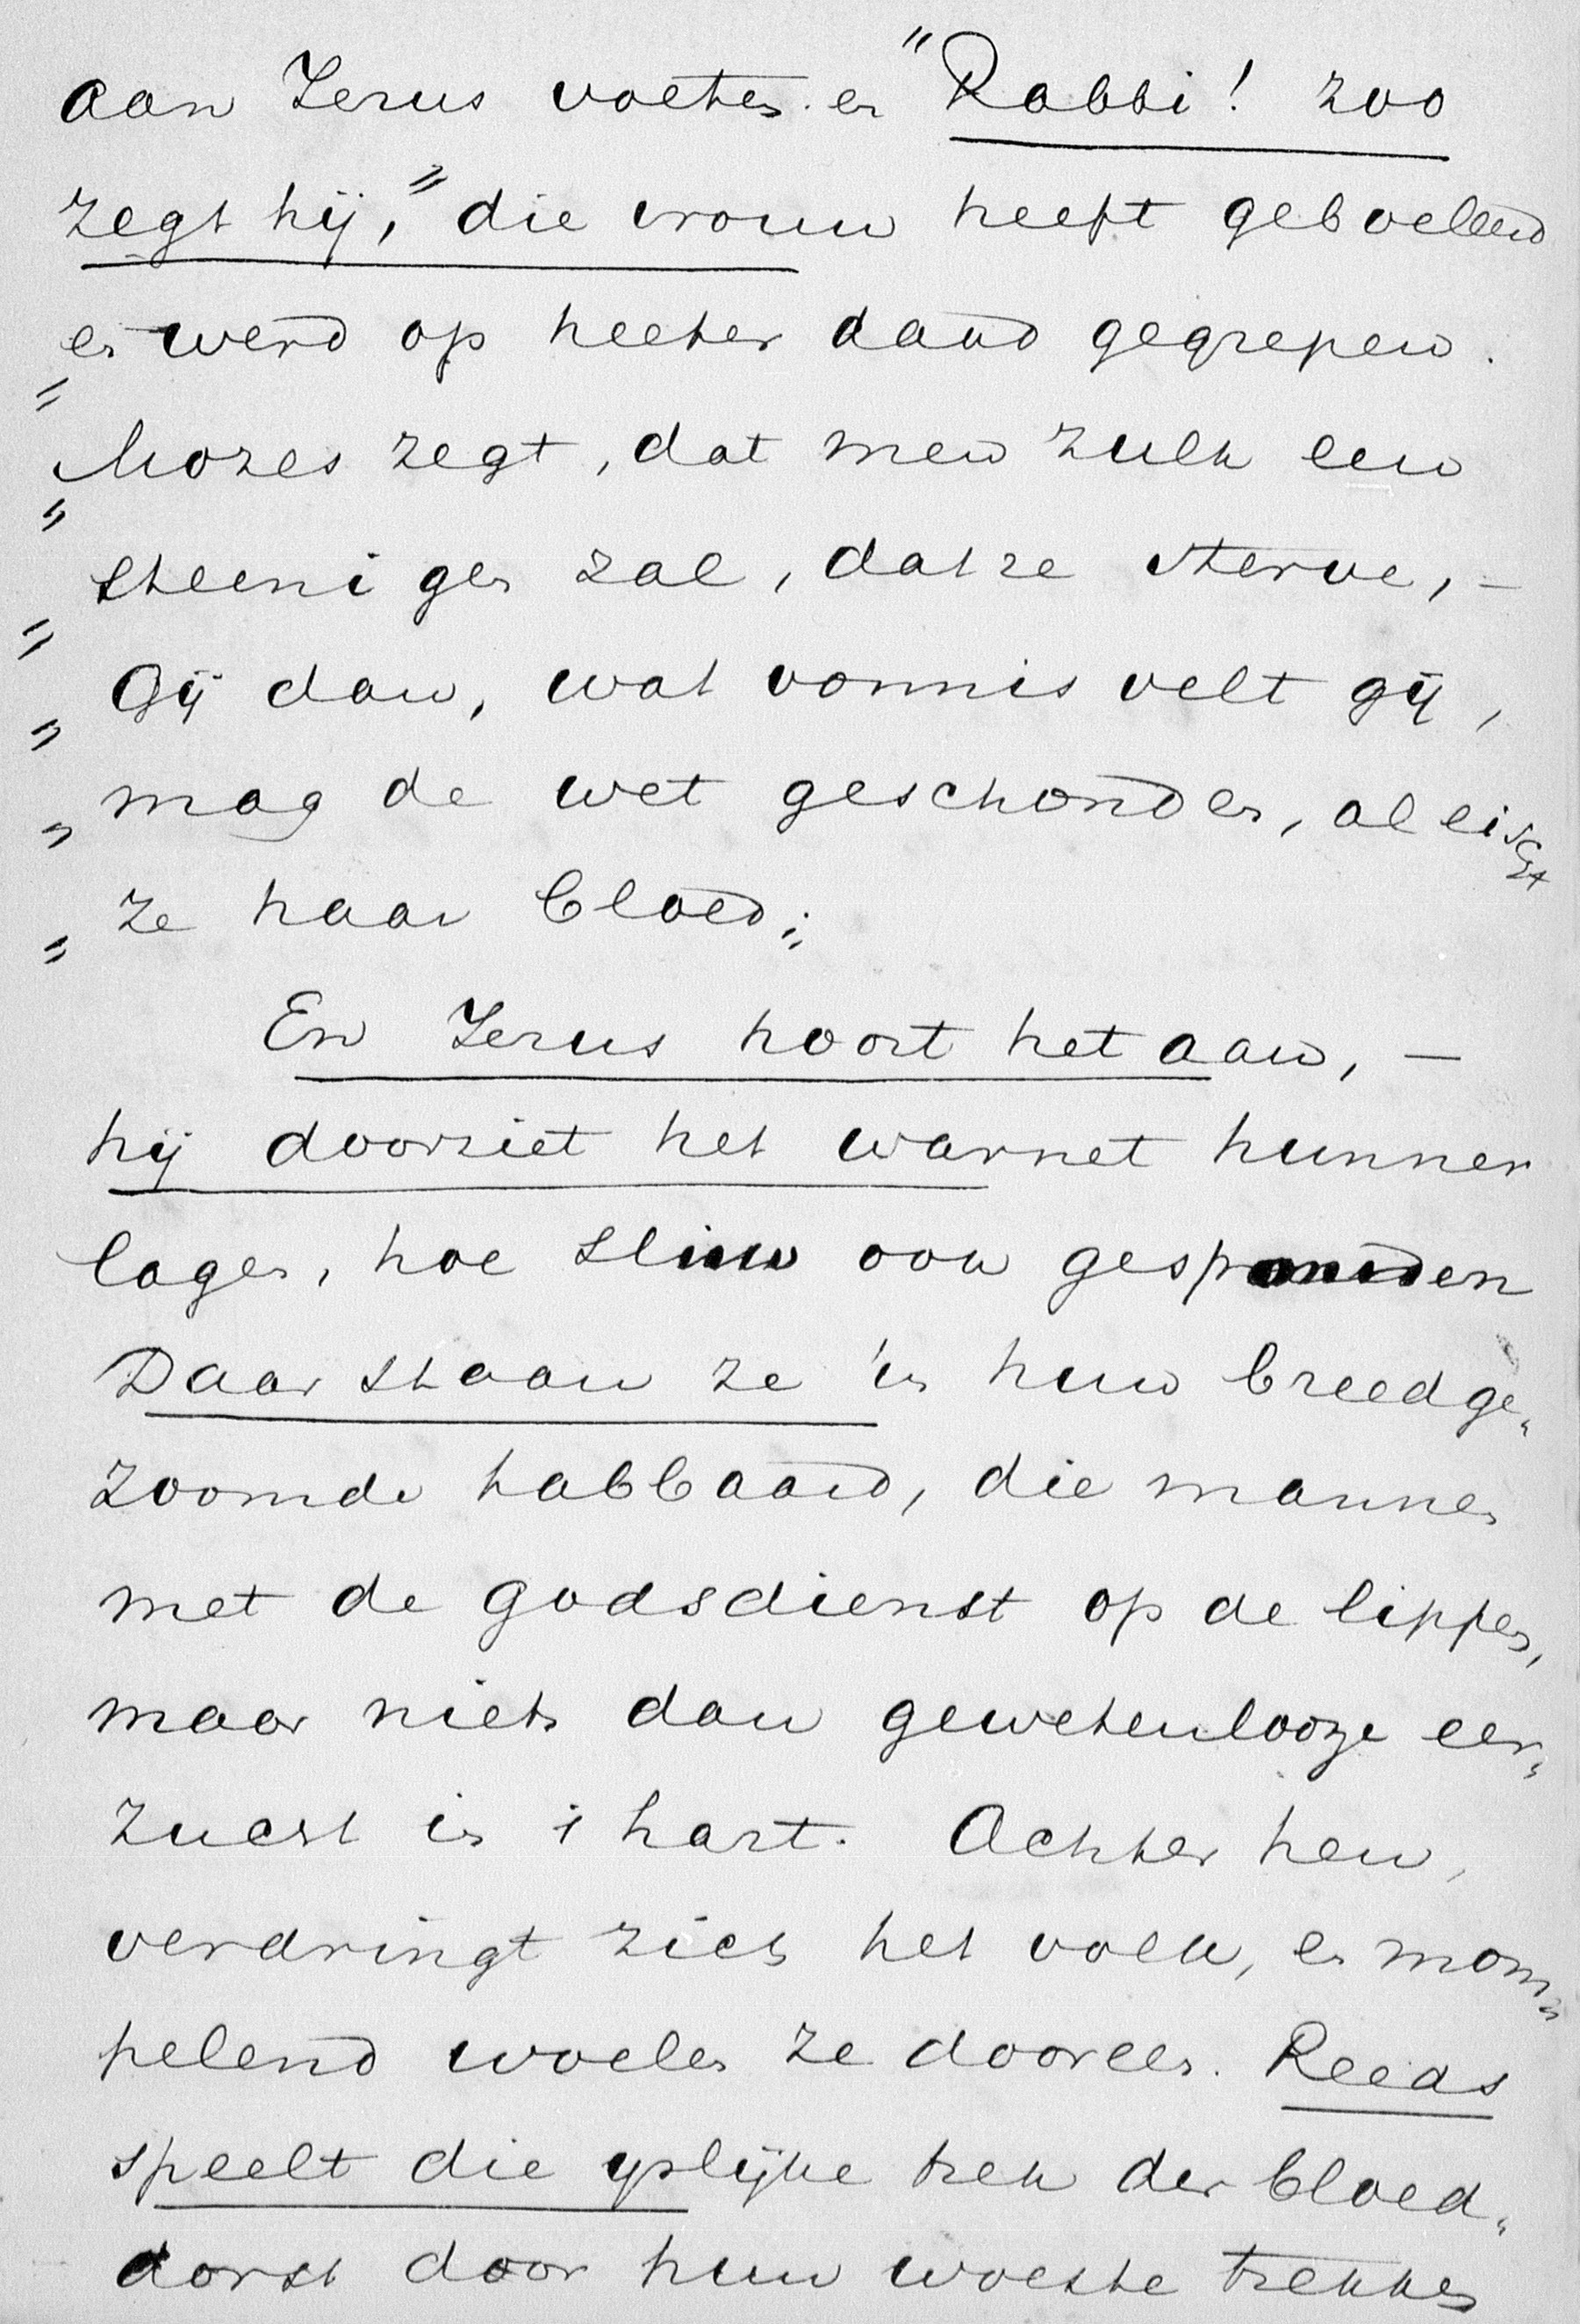 aan Jezus voeten. en "Rabbi! zoo
zegt hij, "die vrouw heeft geboeleerd
en werd op heeter daad gegrepen.
" Mozes zegt, dat men zulk een
" steenigen zal, dat ze sterve, –
" Gij dan, wat vonnis velt gij,
" mag de wet geschonden, al eischt
" ze haar bloed;"
En Jezus hoort het aan, –
hij doorziet het warnet hunner
lagen, hoe slim ook gespannen
Daar staan ze in hun breedge„
zoomde tabbaard, die mannen
met de godsdienst op de lippen,
maar niets dan gewetenlooze eer„
zucht in 't hart. Achter hen,
verdringt zich het volk, en mom„
pelend woelen ze dooreen. Reeds
speelt die yslijke trek der bloed„
dorst door hun woeste trekken